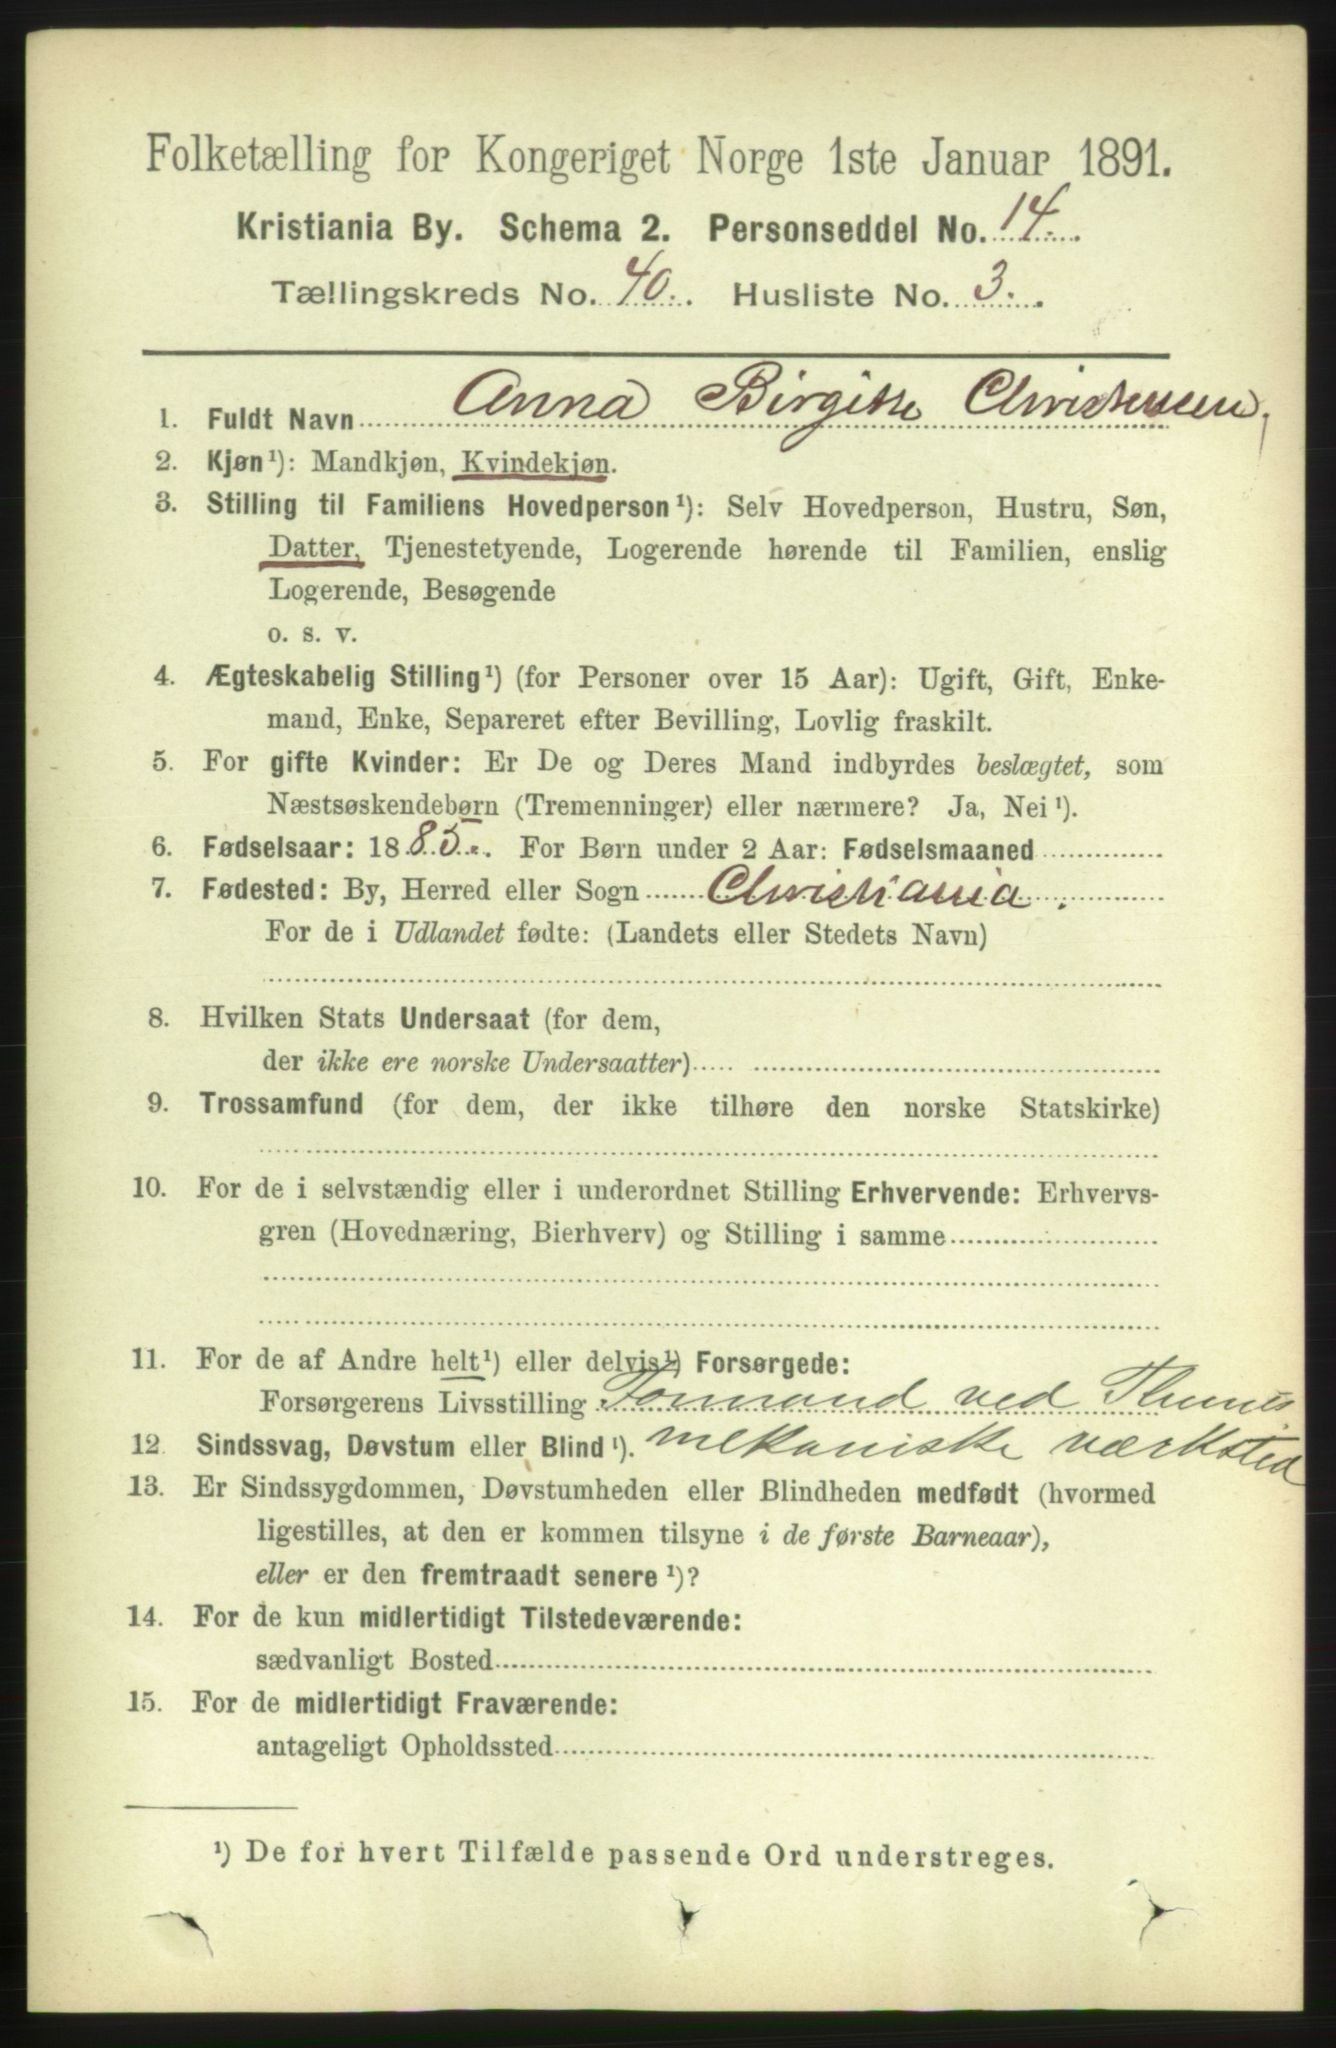 Folketælling for Kongeriget Norge 1ste Januar 1891.
Kristiania By. Schema 2. Personseddel No. 14.
Tællingskreds No. 40. Husliste No. 3.
1. Fuldt Navn Anna Birgitte Christensen,
2. Kjøn¹): Mandkjøn, Kvindekjøn.
3. Stilling til Familiens Hovedperson¹): Selv Hovedperson, Hustru, Søn,
Datter, Tjenestetyende, Logerende hørende til Familien, enslig
Logerende, Besøgende
o. s. v.
4. Ægteskabelig Stilling¹) (for Personer over 15 Aar): Ugift, Gift, Enke-
mand, Enke, Separeret efter Bevilling, Lovlig fraskilt.
5. For gifte Kvinder: Er De og Deres Mand indbyrdes beslægtet, som
Næstsøskendebørn (Tremenninger) eller nærmere? Ja, Nei¹).
6. Fødselsaar: 1885. For Børn under 2 Aar: Fødselsmaaned
7. Fødested: By, Herred eller Sogn Christiania.
For de i Udlandet fødte: (Landets eller Stedets Navn)
8. Hvilken Stats Undersaat (for dem,
der ikke ere norske Undersaatter)
9. Trossamfund (for dem, der ikke tilhøre den norske Statskirke)
10. For de i selvstændig eller i underordnet Stilling Erhvervende: Erhvervs-
gren (Hovednæring, Bierhverv) og Stilling i samme
11. For de af Andre helt¹) eller delvis¹) Forsørgede:
Forsørgerens Livsstilling Formand ved Thunes
mekaniske værksted
12. Sindssvag, Døvstum eller Blind¹).
13. Er Sindssygdommen, Døvstumheden eller Blindheden medfødt (hvormed
ligestilles, at den er kommen tilsyne i de første Barneaar),
eller er den fremtraadt senere¹)?
14. For de kun midlertidigt Tilstedeværende:
sædvanligt Bosted
15. For de midlertidigt Fraværende:
antageligt Opholdssted
¹) De for hvert Tilfælde passende Ord understreges.